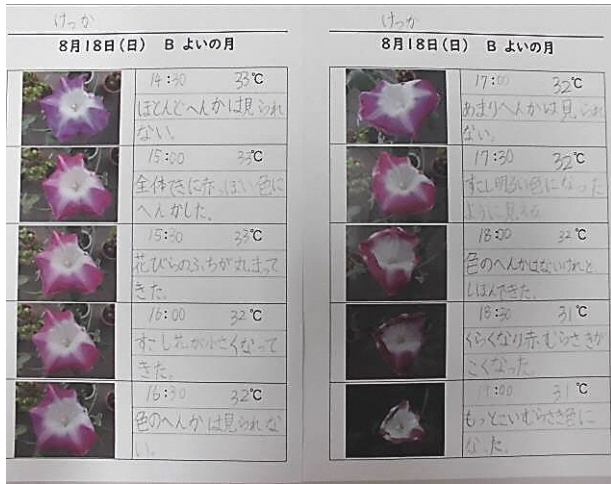 けっか
8月18日(日) B よいの月
14:30 33℃
ほとんどへんかは見られ
ない。
15:00 33℃
全体てきに赤っぽい色に
へんかした。
15:30 33℃
花びらのふちが丸まって
きた。
16:00 32℃
すこし花が小さくなって
きた。
16:30 32℃
色のへんかは見られな
い。
けっか
8月18日(日) B よいの月
17:00 32℃
あまりへんかは見られ
ない。
17:30 32℃
すこし明るい色になった
ように見える
18:00 32℃
色のへんかはないけれど、
しぼんできた。
18:30 31℃
くらくなり赤むらさきが
こくなった。
19:00 31℃
もっとこいむらさき色に
なった。